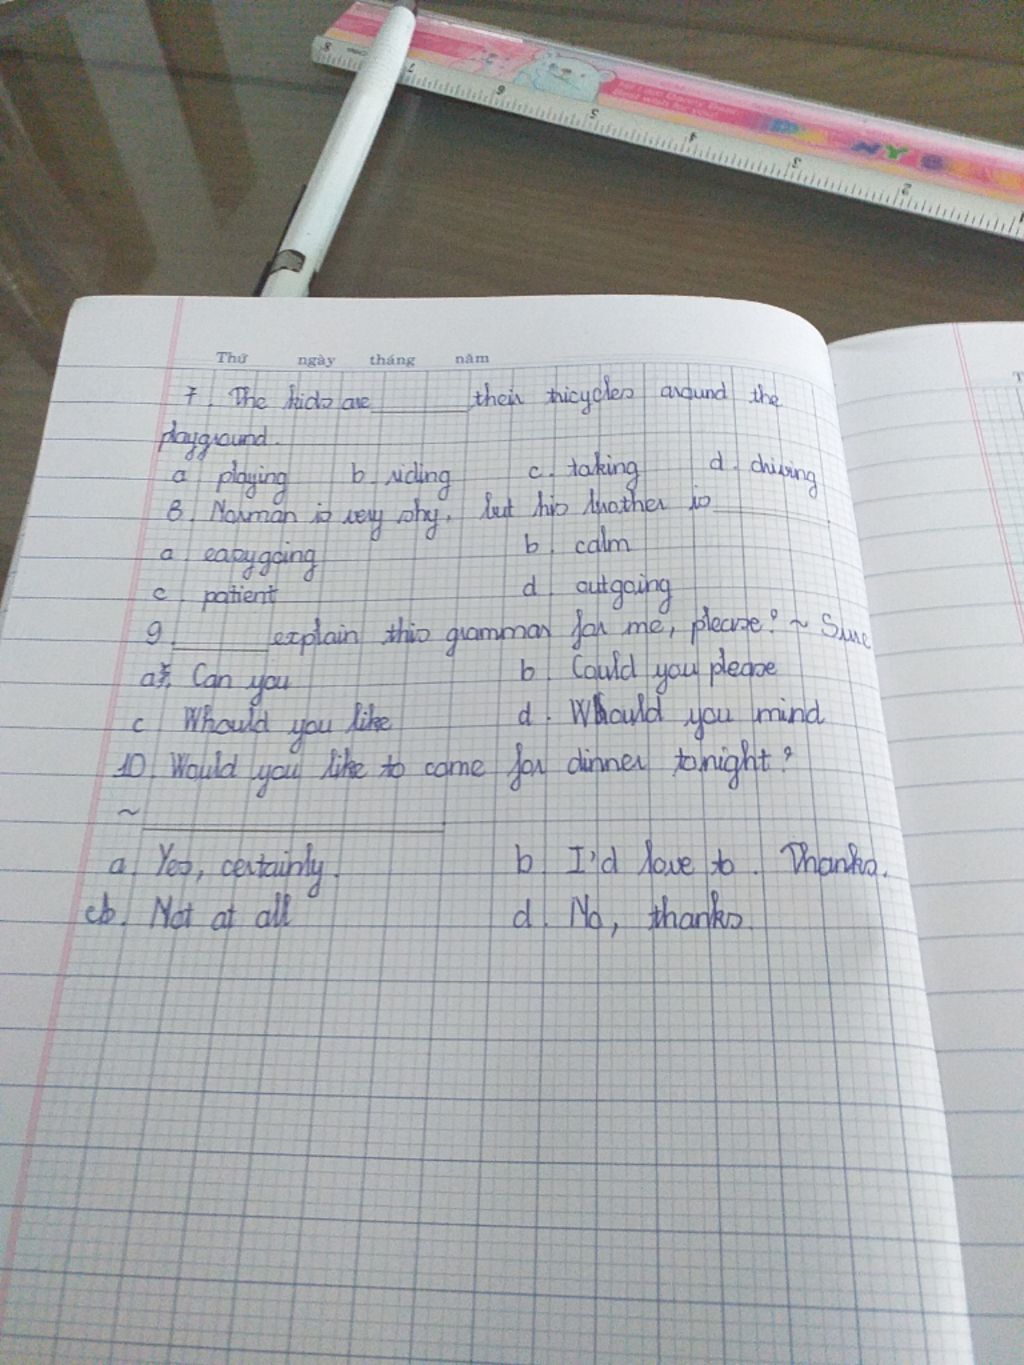 Thứ ngày tháng năm
7. The kids are ______ their tricycles around the
playground.
a playing b. riding c. taking d. driving
8. Norman is very shy, but his brother is ______
a easygoing b. calm
c patient d outgoing
9. ______ explain this grammar for me, please? ~ Sure
a. Can you b. Could you please
c Whould you like d. Would you mind
10. Would you like to come for dinner tonight?
~ ______
a. Yes, certainly. b. I'd love to. Thanks.
cb. Not at all d. No, thanks.
8 7 6 5 4 3 2 1
NY